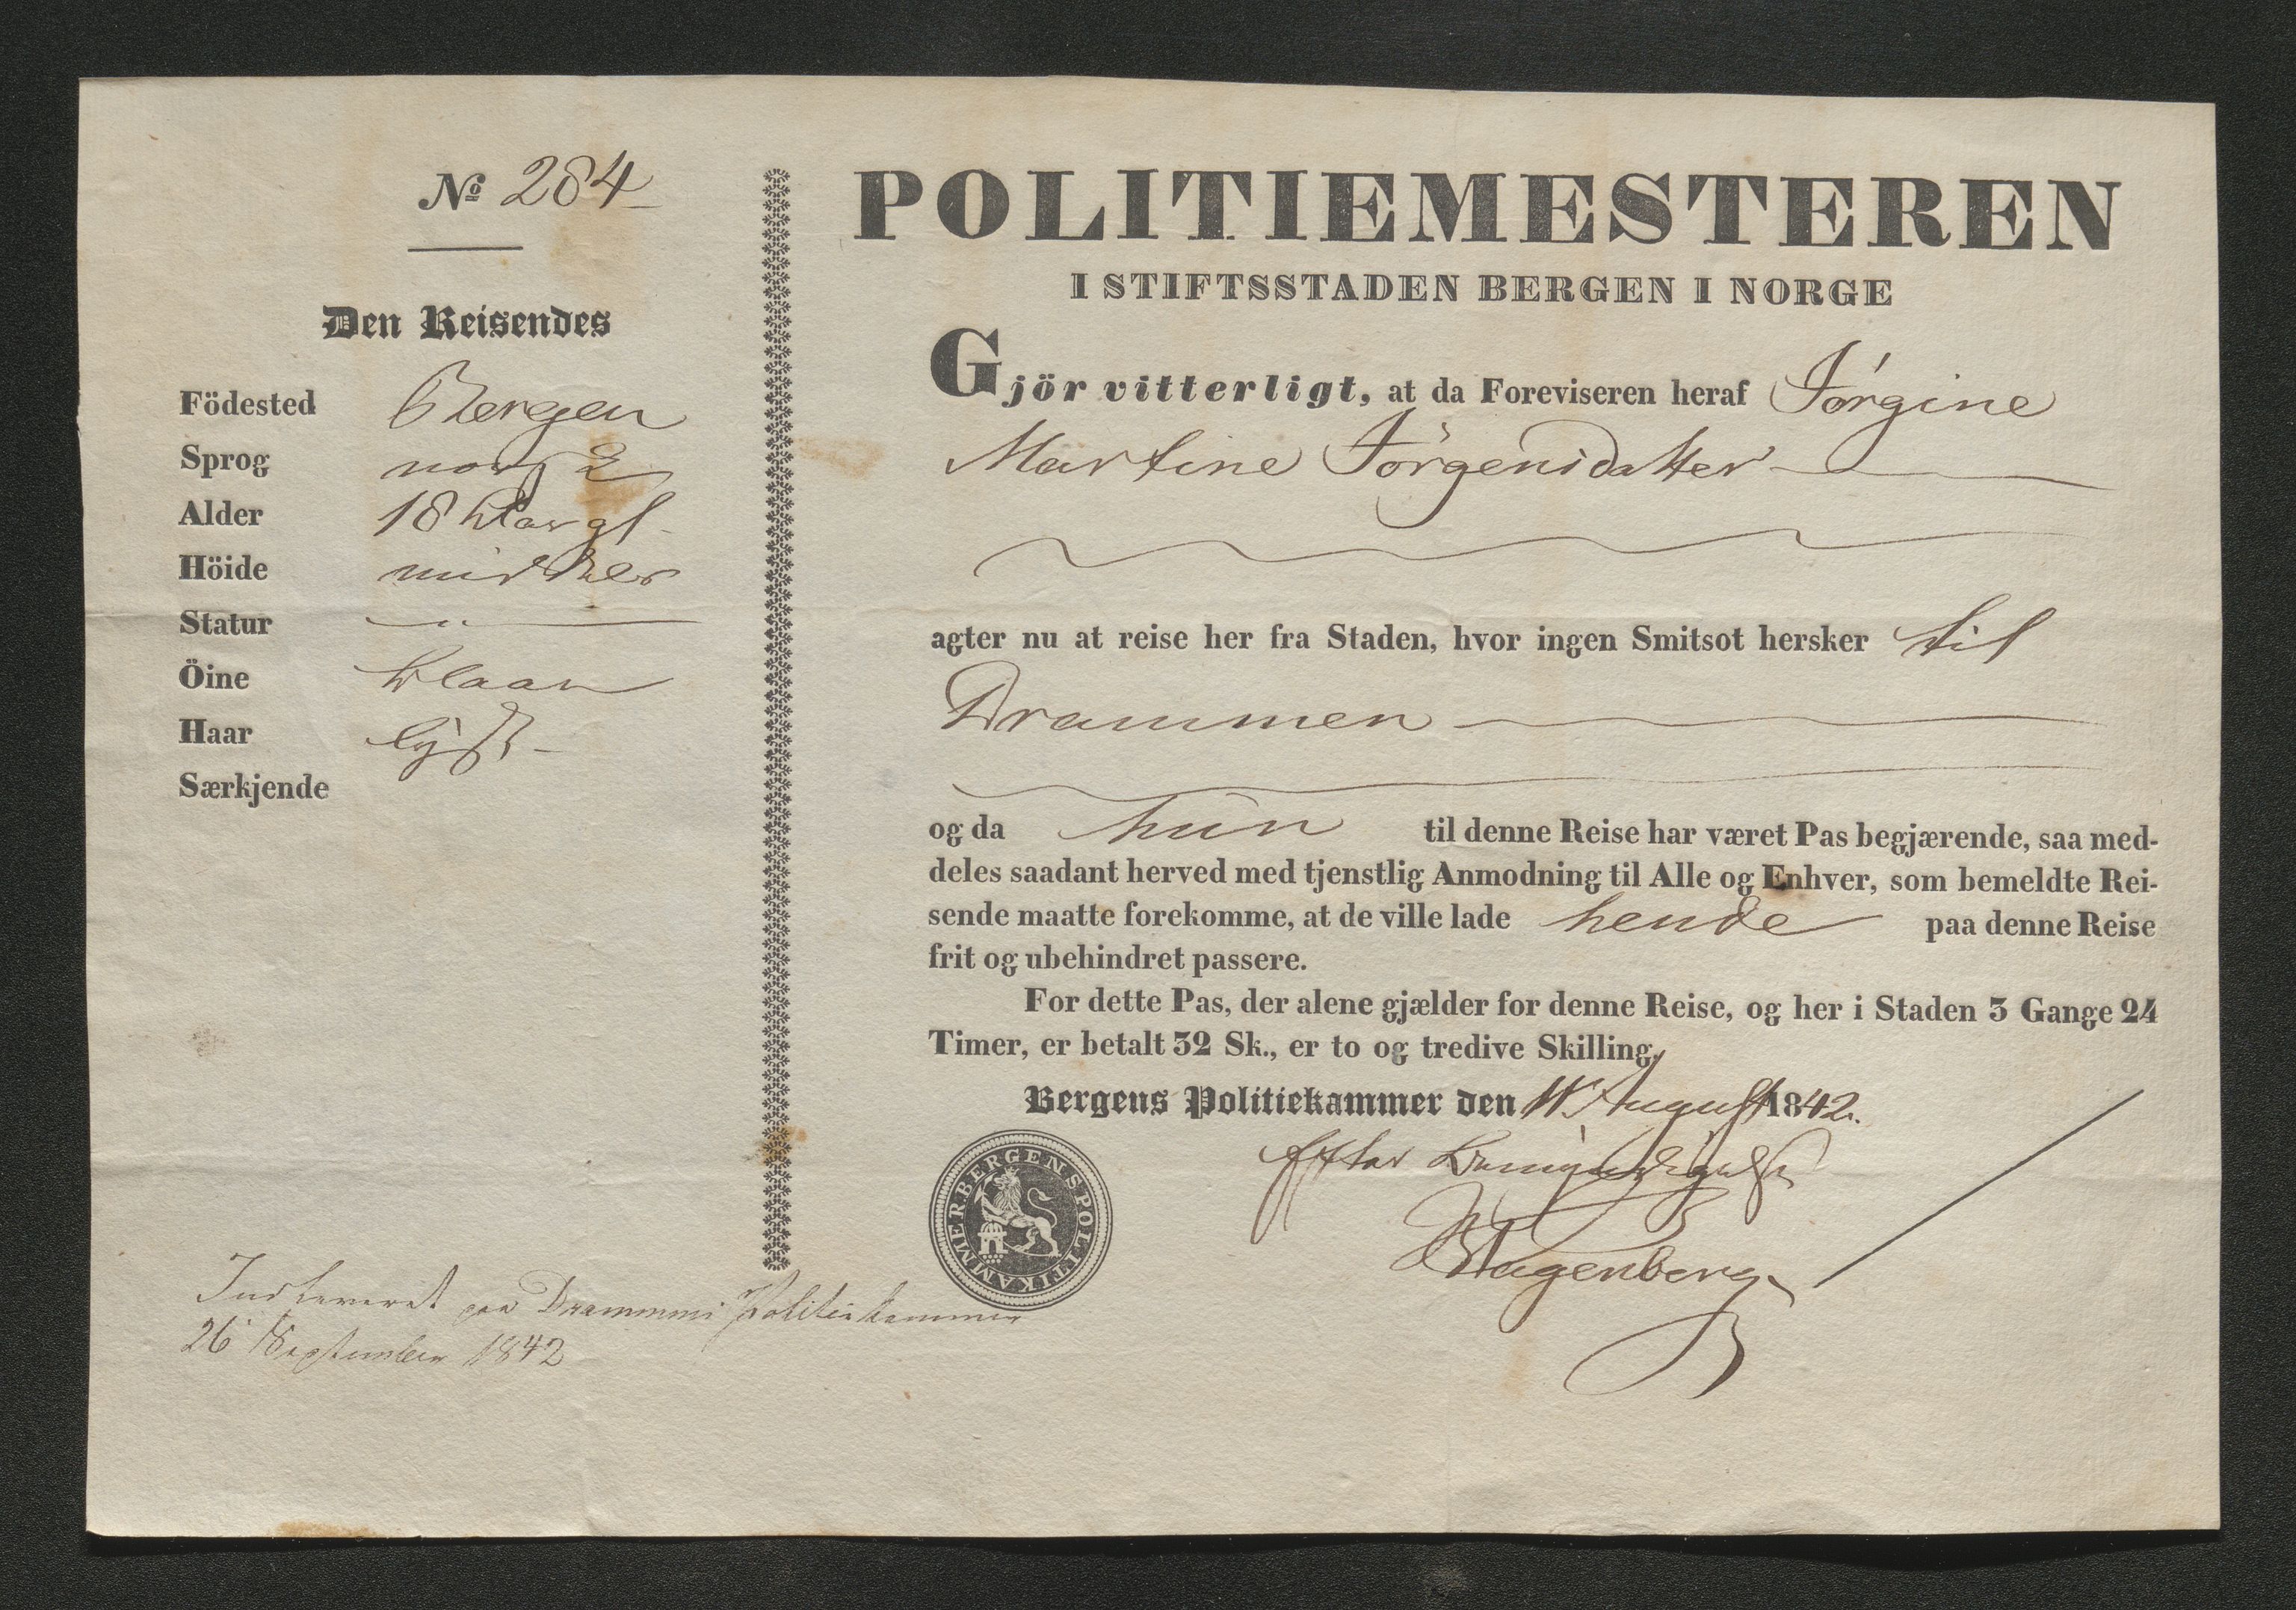 № 284
Den Reisendes
Födested Bergen
Sprog norsk
Alder 18 Aar gl.
Höide middel
Statur — " —
Öine blaae
Haar lyst
Særkjende
POLITIEMESTEREN
I STIFTSSTADEN BERGEN I NORGE
Gjör vitterligt, at da Foreviseren heraf Jørgine
Martine Jørgensdatter
agter nu at reise her fra Staden, hvor ingen Smitsot hersker til
Drammen
og da hun til denne Reise har været Pas begjærende, saa med-
deles saadant herved med tjenstlig Anmodning til Alle og Enhver, som bemeldte Rei-
sende maatte forekomme, at de ville lade hende paa denne Reise
frit og ubehindret passere.
For dette Pas, der alene gjælder for denne Reise, og her i Staden 3 Gange 24
Timer, er betalt 32 Sk., er to og tredive Skilling.
Bergens Politiekammer den August 1842.
efter Bemyndigelse
Hagenberg
BERGENS POLITIKAMMER
Indleveret paa Drammens Politiekammer
26 September 1842